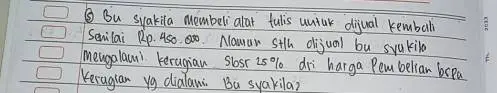 ⑤ Bu syakila membeli alat tulis untuk dijual kembali
Senilai Rp. 450.000. Namun stlh dijual bu syakila
mengalami kerugian sbsr 25% dri harga Pembelian bspa
kerugian yg dialami Bu syakila?